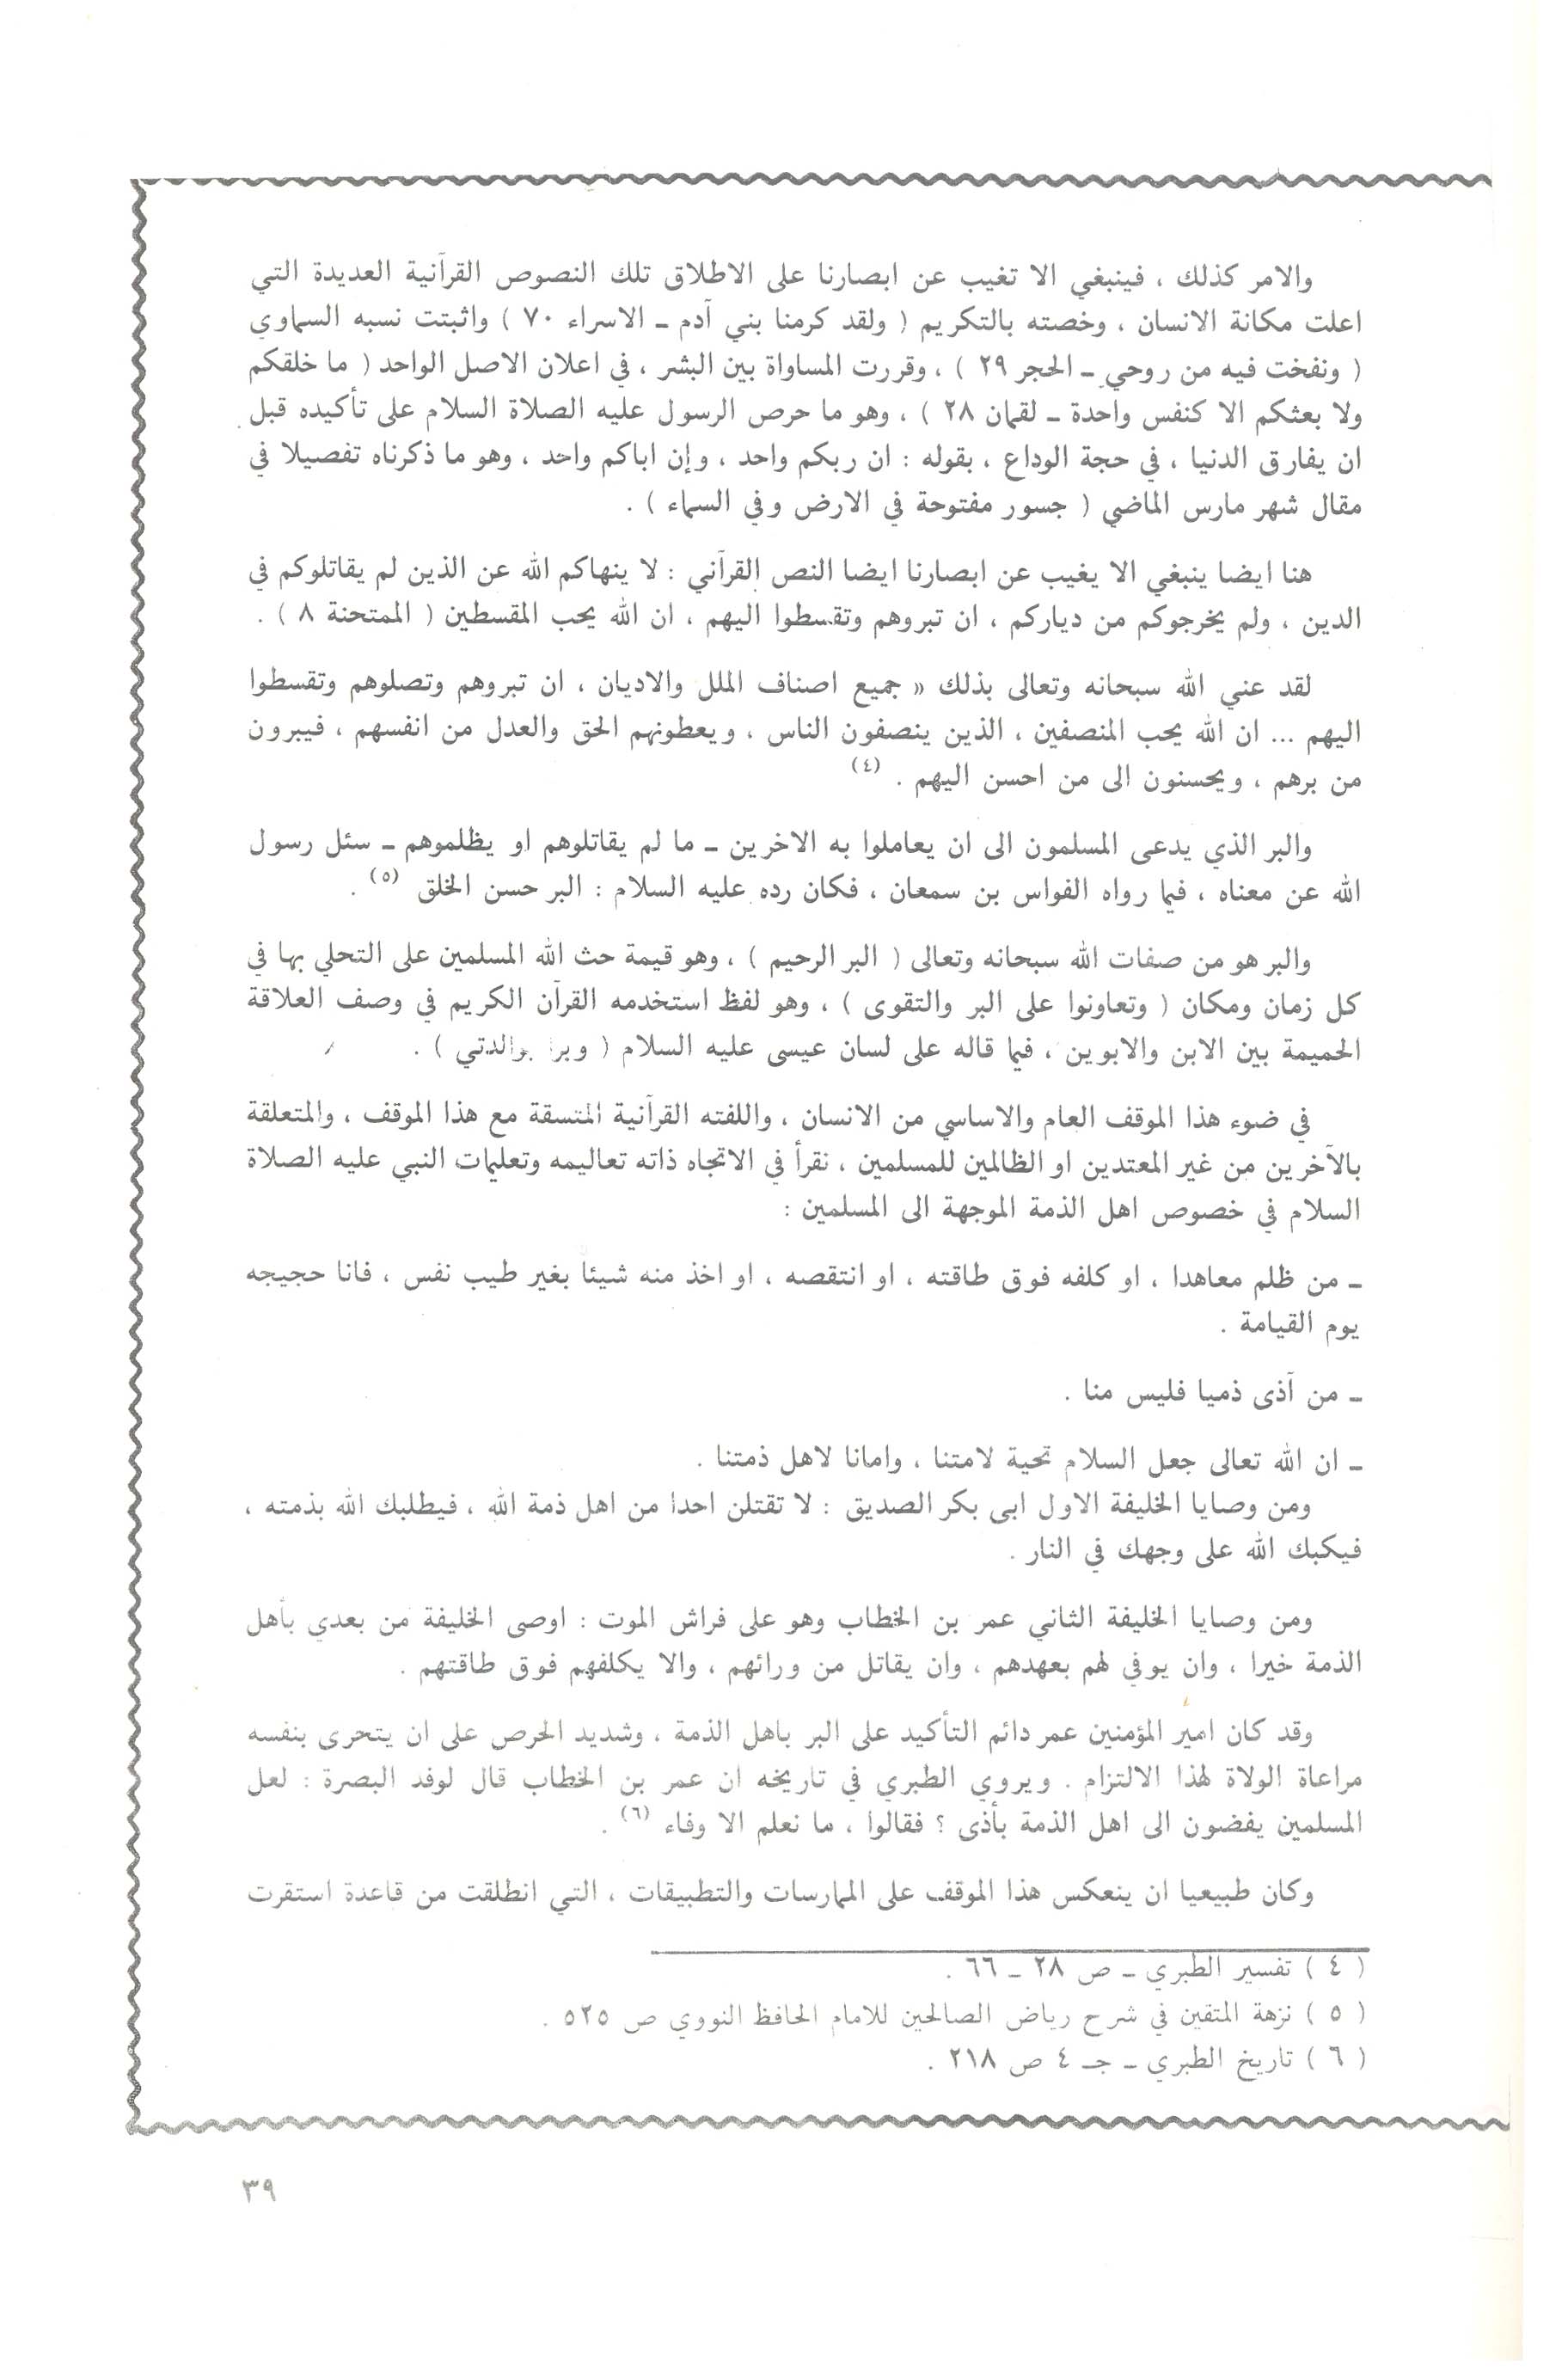 والامر كذلك ، فينبغي الا تغيب عن ابصارنا على الاطلاق تلك النصوص القرآنية العديدة التي
اعلت مكانة الانسان ، وخصته بالتكريم ( ولقد كرمنا بني آدم ــ الاسراء ٧٠ ) واثبتت نسبه السماوي
( ونفخت فيه من روحي ــ الحجر ٢٩ ) ، وقررت المساواة بين البشر ، في اعلان الاصل الواحد ( ما خلقكم
ولا بعثكم الا كنفس واحدة ــ لقمان ٢٨ ) ، وهو ما حرص الرسول عليه الصلاة السلام على تأكيده قبل
ان يفارق الدنيا ، في حجة الوداع ، بقوله : ان ربكم واحد ، وإن اباكم واحد ، وهو ما ذكرناه تفصيلا في
مقال شهر مارس الماضي ( جسور مفتوحة في الارض وفي السماء ) .
هنا ايضا ينبغي الا يغيب عن ابصارنا ايضا النص القرآني : لا ينهاكم الله عن الذين لم يقاتلوكم في
الدين ، ولم يخرجوكم من دياركم ، ان تبروهم وتقسطوا اليهم ، ان الله يحب المقسطين ( الممتحنة ٨ ) .
لقد عني الله سبحانه وتعالى بذلك « جميع اصناف الملل والاديان ، ان تبروهم وتصلوهم وتقسطوا
اليهم ... ان الله يحب المنصفين ، الذين ينصفون الناس ، ويعطونهم الحق والعدل من انفسهم ، فيبرون
من برهم ، ويحسنون الى من احسن اليهم . (٤)
والبر الذي يدعى المسلمون الى ان يعاملوا به الاخرين ــ ما لم يقاتلوهم او يظلموهم ــ سئل رسول
الله عن معناه ، فيما رواه الفواس بن سمعان ، فكان رده عليه السلام : البر حسن الخلق (٥) .
والبر هو من صفات الله سبحانه وتعالى ( البر الرحيم ) ، وهو قيمة حث الله المسلمين على التحلي بها في
كل زمان ومكان ( وتعاونوا على البر والتقوى ) ، وهو لفظ استخدمه القرآن الكريم في وصف العلاقة
الحميمة بين الابن والابوين ، فيما قاله على لسان عيسى عليه السلام ( وبرا بوالدتي ) .
في ضوء هذا الموقف العام والاساسي من الانسان ، واللفته القرآنية المتسقة مع هذا الموقف ، والمتعلقة
بالآخرين من غير المعتدين او الظالمين للمسلمين ، نقرأ في الاتجاه ذاته تعاليمه وتعليمات النبي عليه الصلاة
السلام في خصوص اهل الذمة الموجهة الى المسلمين :
ــ من ظلم معاهدا ، او كلفه فوق طاقته ، او انتقصه ، او اخذ منه شيئا بغير طيب نفس ، فانا حجيجه
يوم القيامة .
ــ من آذى ذميا فليس منا .
ــ ان الله تعالى جعل السلام تحية لامتنا ، وامانا لاهل ذمتنا .
ومن وصايا الخليفة الاول ابى بكر الصديق : لا تقتلن احدا من اهل ذمة الله ، فيطلبك الله بذمته ،
فيكبك الله على وجهك في النار .
ومن وصايا الخليفة الثاني عمر بن الخطاب وهو على فراش الموت : اوصى الخليفة من بعدي بأهل
الذمة خيرا ، وان يوفي لهم بعهدهم ، وان يقاتل من ورائهم ، والا يكلفهم فوق طاقتهم .
وقد كان امير المؤمنين عمر دائم التأكيد على البر باهل الذمة ، وشديد الحرص على ان يتحرى بنفسه
مراعاة الولاة لهذا الالتزام . ويروي الطبري في تاريخه ان عمر بن الخطاب قال لوفد البصرة : لعل
المسلمين يفضون الى اهل الذمة بأذى ؟ فقالوا ، ما نعلم الا وفاء (٦) .
وكان طبيعيا ان ينعكس هذا الموقف على الممارسات والتطبيقات ، التي انطلقت من قاعدة استقرت
( ٤ ) تفسير الطبري ــ ص ٢٨ ــ ٦٦ .
( ٥ ) نزهة المتقين في شرح رياض الصالحين للامام الحافظ النووي ص ٥٢٥ .
( ٦ ) تاريخ الطبري ــ جـ ٤ ص ٢١٨ .
٣٩